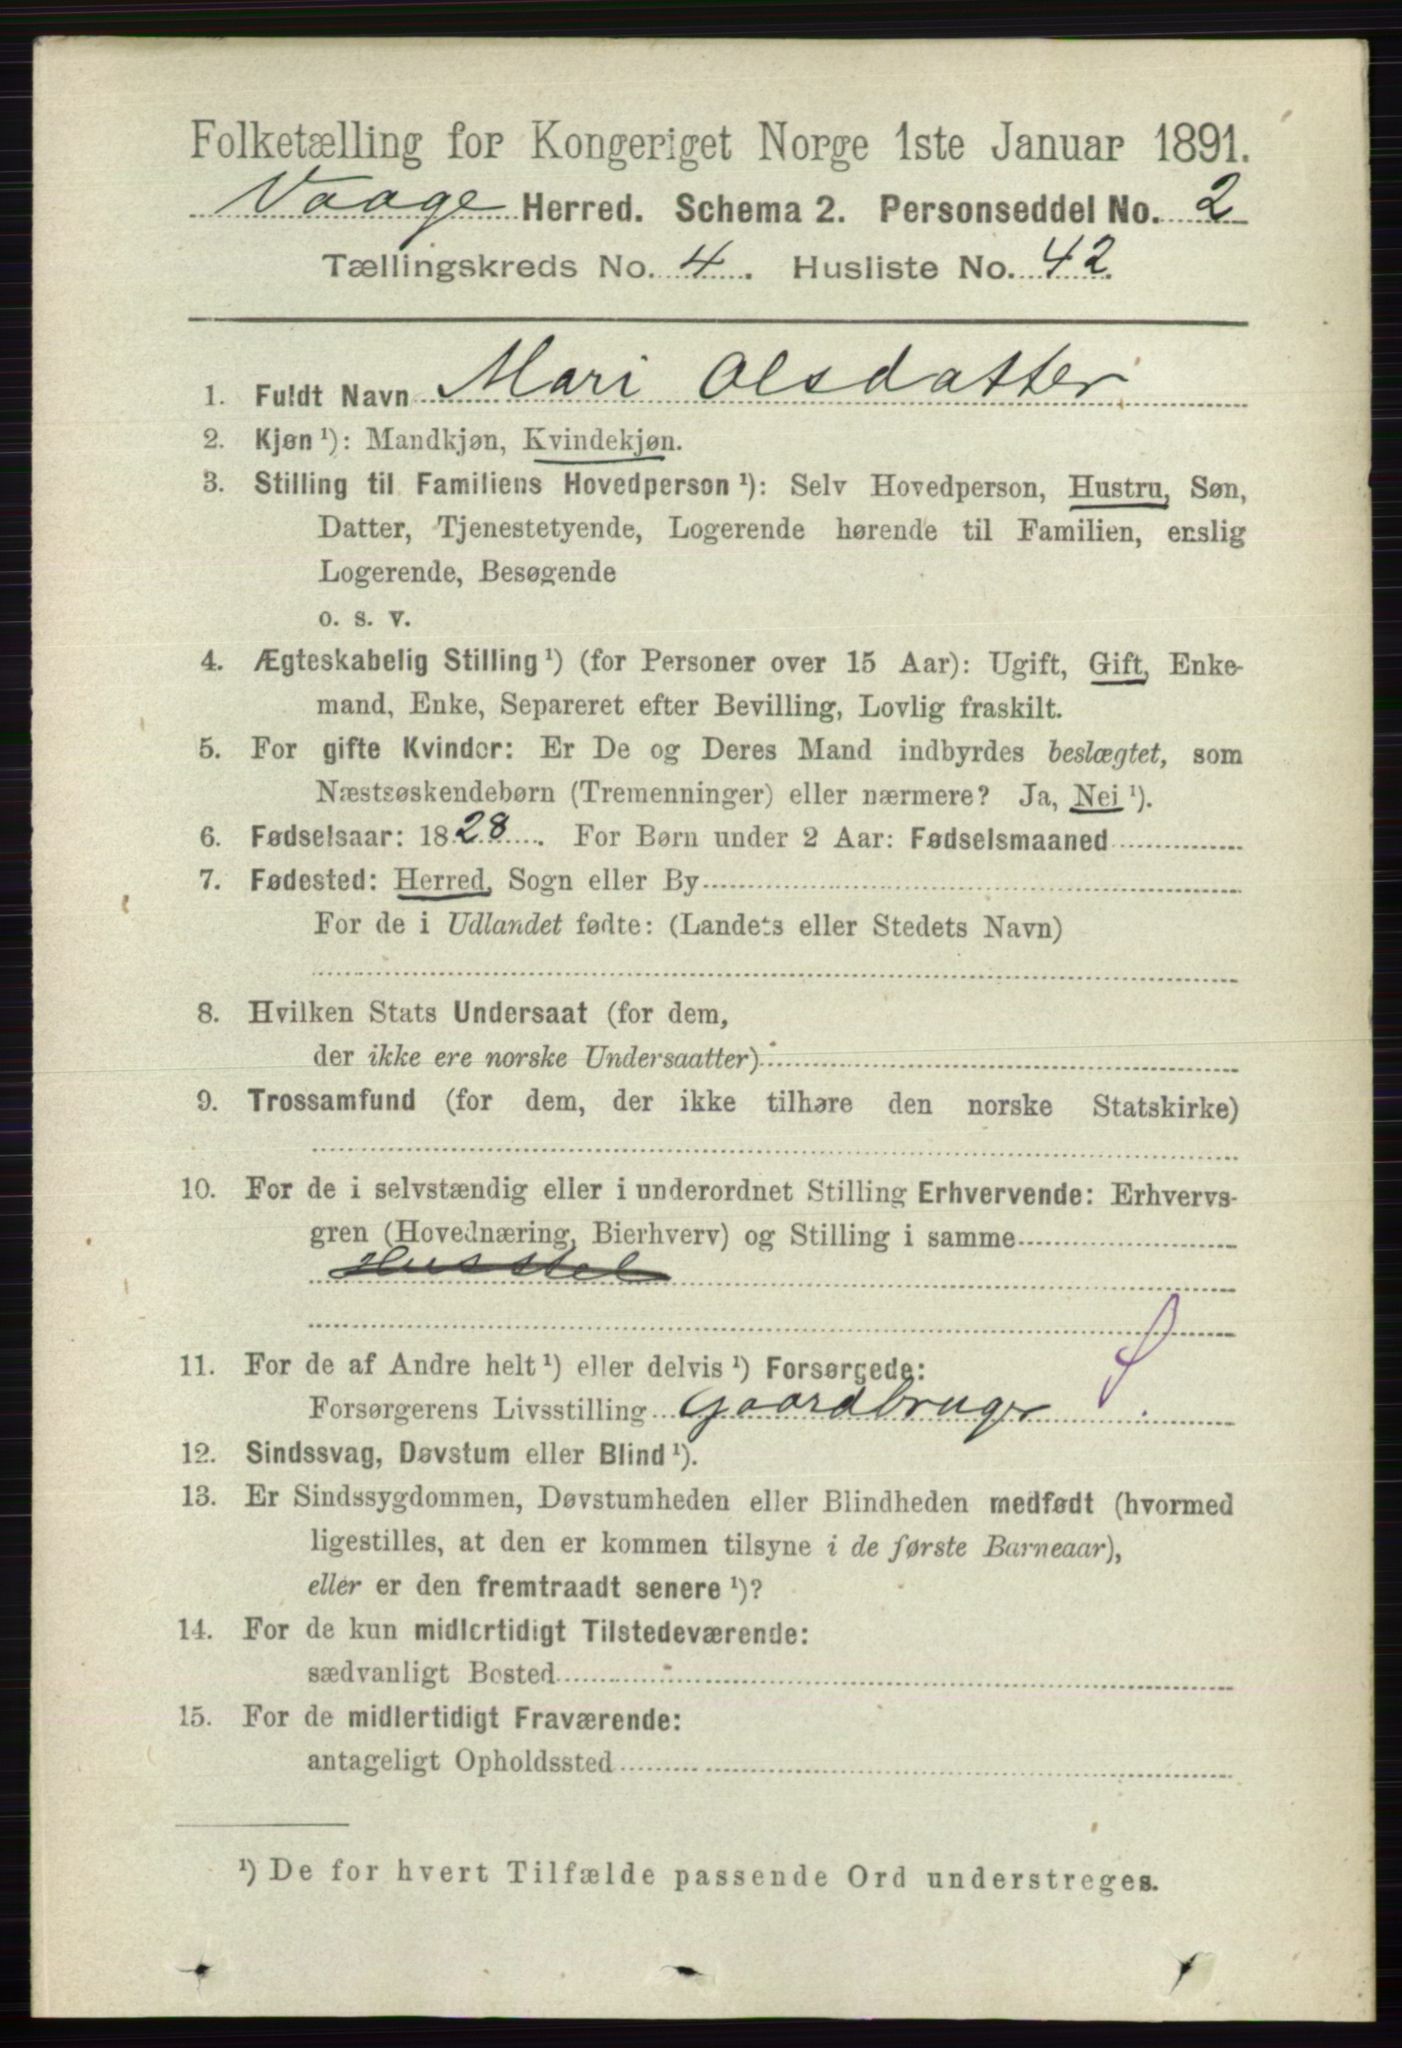 Folketælling for Kongeriget Norge 1ste Januar 1891.
Vaage Herred. Schema 2. Personseddel No. 2
Tællingskreds No. 4. Husliste No. 42.
1. Fuldt Navn Mari Olsdatter
2. Kjøn ¹): Mandkjøn, Kvindekjøn.
3. Stilling til Familiens Hovedperson ¹): Selv Hovedperson, Hustru, Søn,
Datter, Tjenestetyende, Logerende hørende til Familien, enslig
Logerende, Besøgende
o. s. v.
4. Ægteskabelig Stilling ¹) (for Personer over 15 Aar): Ugift, Gift, Enke-
mand, Enke, Separeret efter Bevilling, Lovlig fraskilt.
5. For gifte Kvinder: Er De og Deres Mand indbyrdes beslægtet, som
Næstsøskendebørn (Tremenninger) eller nærmere? Ja, Nei ¹).
6. Fødselsaar: 1828. For Børn under 2 Aar: Fødselsmaaned
7. Fødested: Herred, Sogn eller By
For de i Udlandet fødte: (Landets eller Stedets Navn)
8. Hvilken Stats Undersaat (for dem,
der ikke ere norske Undersaatter)
9. Trossamfund (for dem, der ikke tilhøre den norske Statskirke)
10. For de i selvstændig eller i underordnet Stilling Erhvervende: Erhvervs-
gren (Hovednæring, Bierhverv) og Stilling i samme
Husstel
11. For de af Andre helt ¹) eller delvis ¹) Forsørgede:
Forsørgerens Livsstilling Gaardbruger
12. Sindssvag, Døvstum eller Blind ¹).
13. Er Sindssygdommen, Døvstumheden eller Blindheden medfødt (hvormed
ligestilles, at den er kommen tilsyne i de første Barneaar),
eller er den fremtraadt senere ¹)?
14. For de kun midlertidigt Tilstedeværende:
sædvanligt Bosted
15. For de midlertidigt Fraværende:
antageligt Opholdssted
¹) De for hvert Tilfælde passende Ord understreges.